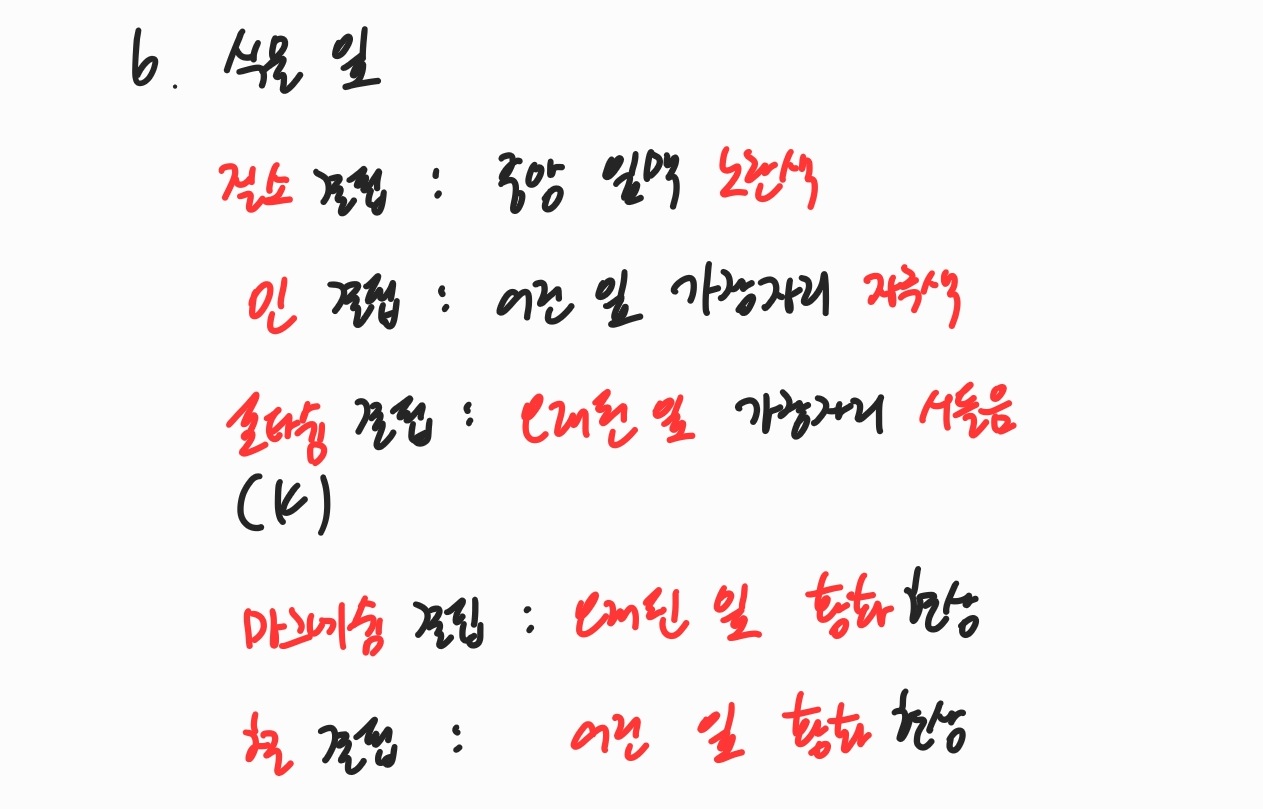 6. 식물 잎
질소 결핍 : 중앙 잎맥 노란색
인 결핍 : 어린 잎 가장자리 자주색
칼륨 결핍 : 오래된 잎 가장자리 시듦음
(K)
마그네슘 결핍 : 오래된 잎 황화 현상
철 결핍 : 어린 잎 황화 현상